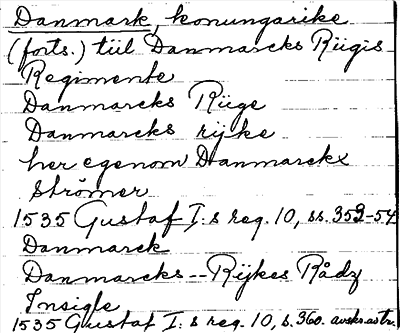 Danmark, konungarike
(forts.) tiil Danmarcks Riigis
Regimente
Danmarcks Riige
Danmarcks rijke
her egenom Danmarckx
Strömer
1535 Gustaf I:s reg. 10, ss. 353-54
Danmarck
Danmarcks--Rijkes Rådz
Insigle
1535 Gustaf I:s reg. 10, s. 360. avskr.